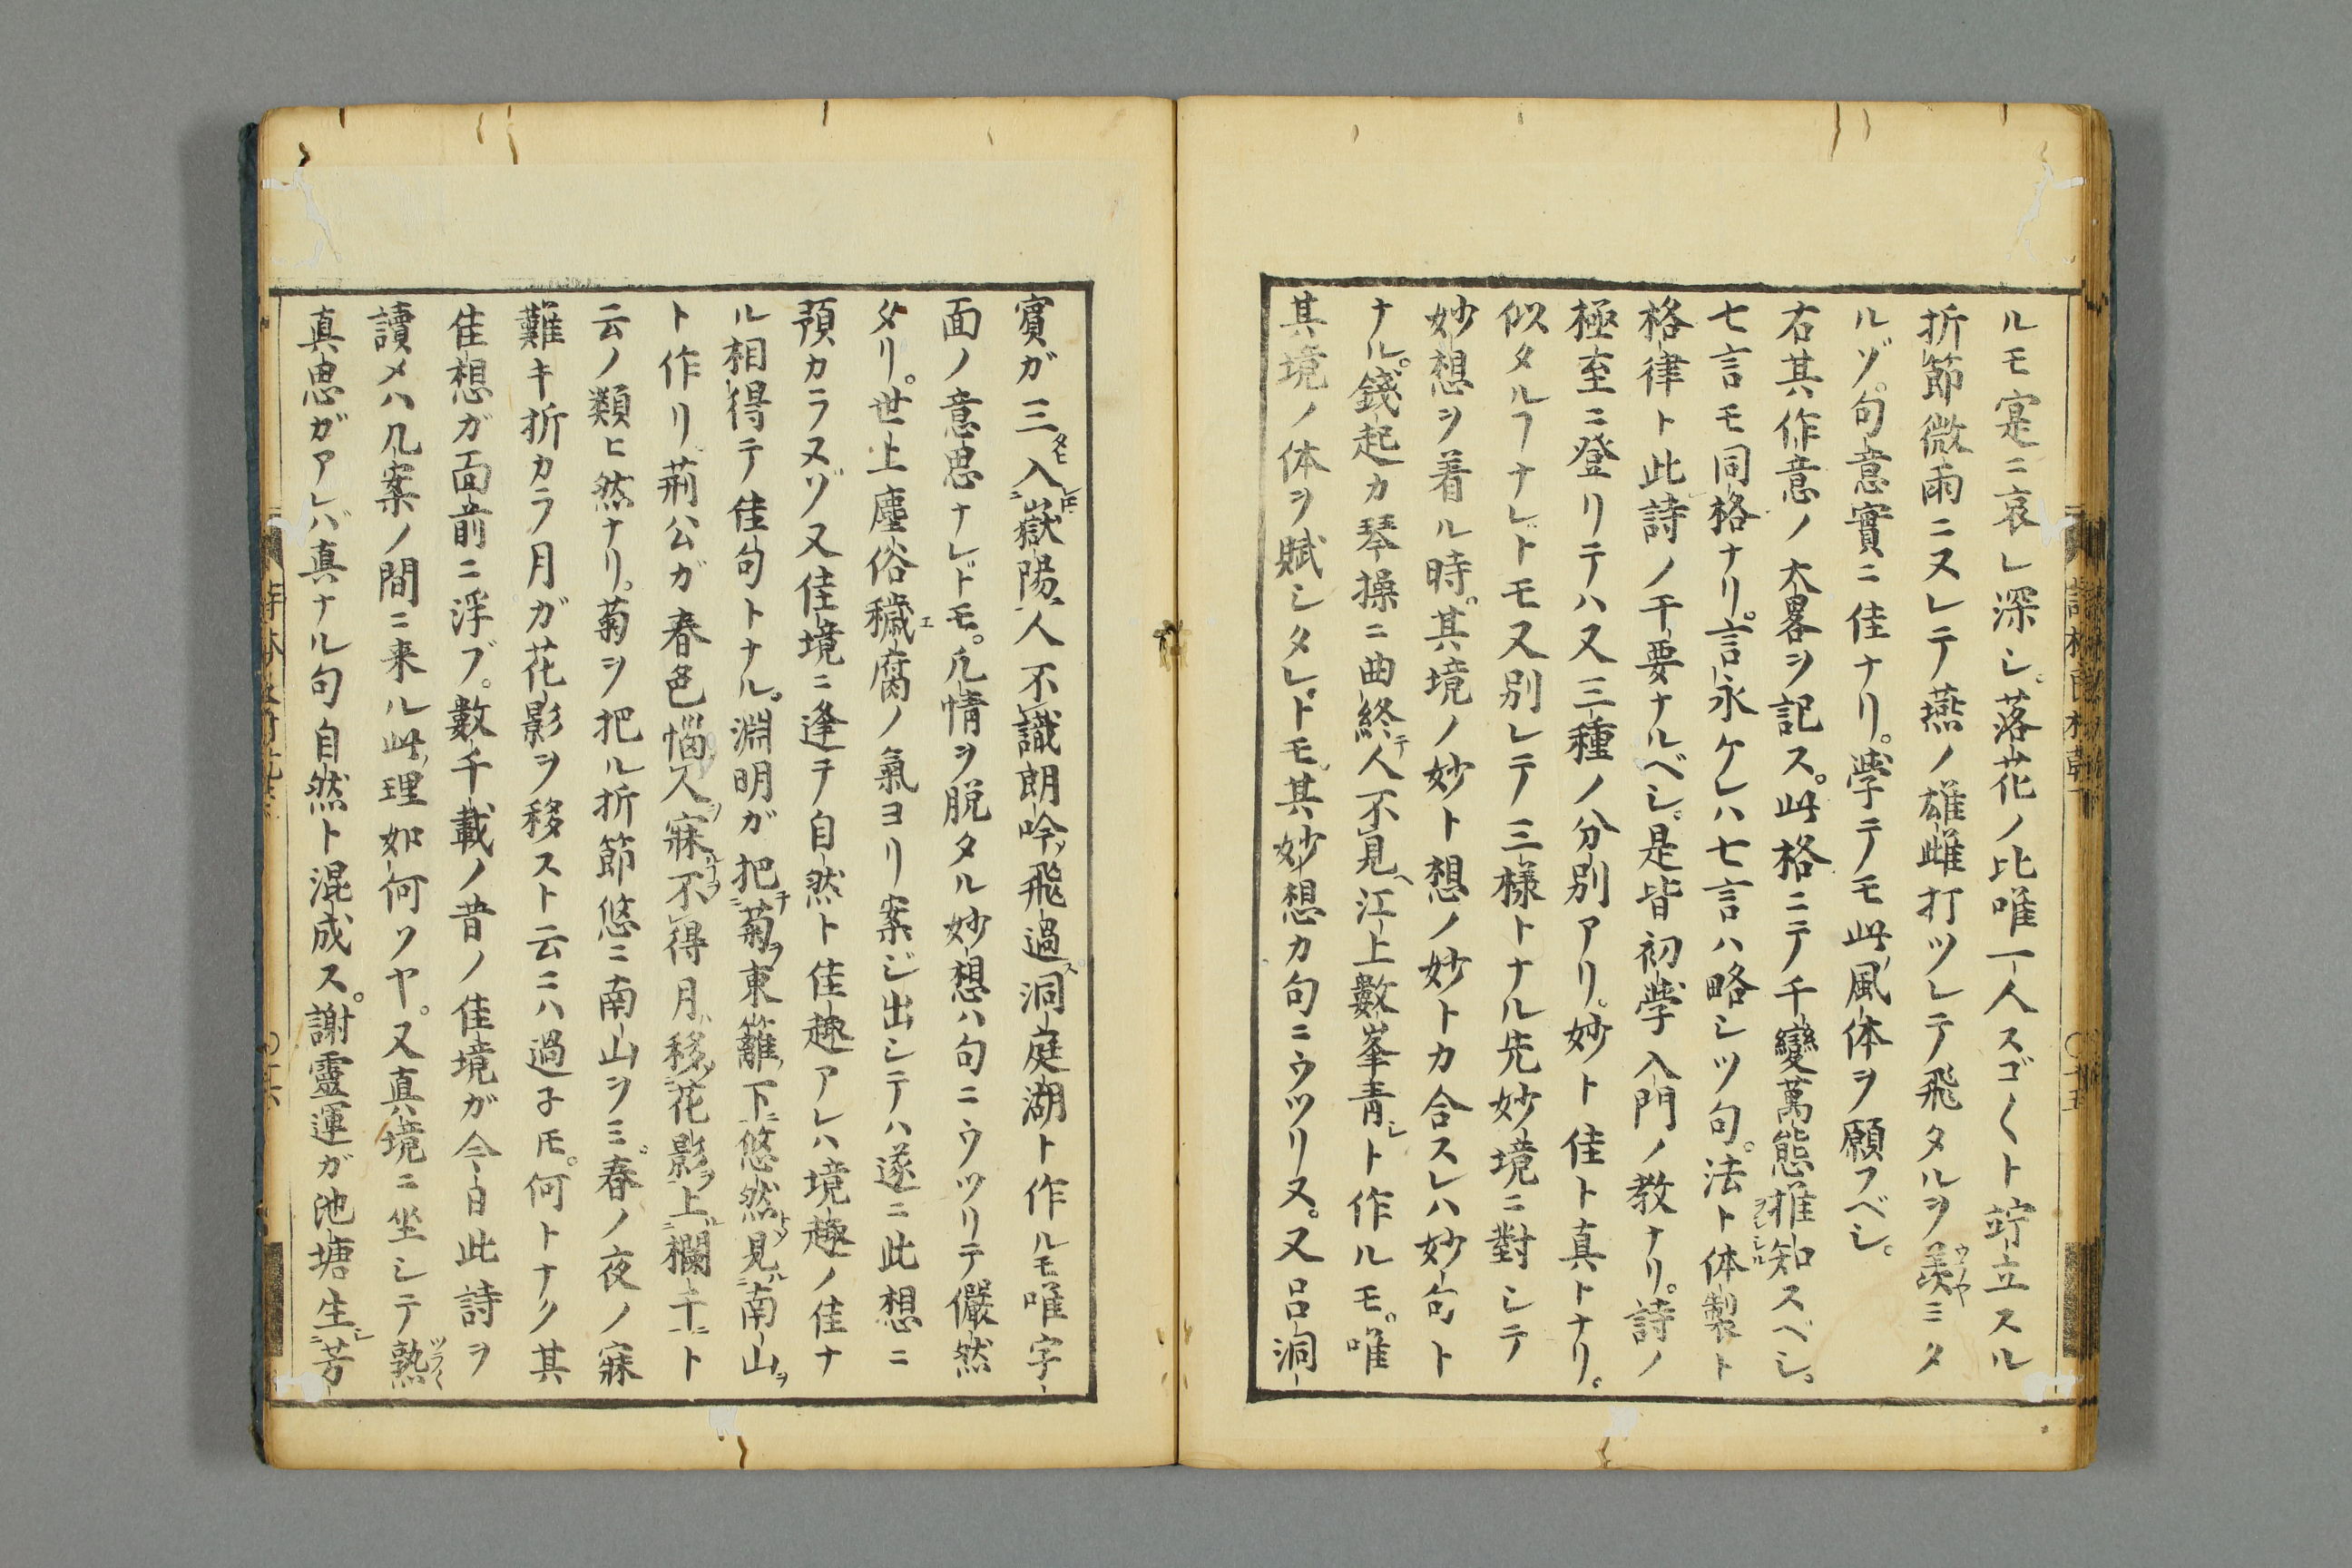 ルモ寔ニ哀レ深シ。落花ノ比唯一人スゴ〱ト竚立スル
折節微雨ニヌレテ燕ノ雄雌打ツレテ飛タルヲ羨ミタ
ルゾ。句意實ニ佳ナリ。学テノモ此風体ヲ願フベシ。
右其作意ノ大畧ヲ記ス。此格ニテ千變萬態推知スベシ。
七言モ同格ナリ。言永ケレハ七言ハ略シツ句。法ト体製ト
格律ト此詩ノ干要ナルベシ。是皆初学入門ノ教ナリ。詩ノ
極至ニ登リテハ又三種ノ分別アリ。妙ト佳ト真トナリ。
似タルヿナレドモ又別レテ三様トナル先妙境ニ對シテ
妙想ヲ着ル時。其境ノ妙ト想ノ妙トカ合スレハ妙句ト
ナル。錢起カ琴操ニ曲終テ人不見ヘ江上數峯青シト作ルモ。唯
其境ノ体ヲ賦シタレドモ。其妙想カ句ニウツリヌ。又呂洞
賓ガ三タヒ入嶽陽人不識朗吟飛過洞庭湖ト作ルモ唯字
面ノ意思ナレドモ。凢情ヲ脱タル妙想ハ句ニウツリテ儼然
タリ。世上塵俗穢腐ノ氣ヨリ案ジ出シテハ遂ニ此想ニ
預カラヌゾ又佳境ニ逢テ自然ト佳趣アレハ境趣ノ佳ナ
ル相得テ佳句トナル。淵明ガ把菊東籬下悠然見南山ヲ
ト作リ荊公ガ春色惱人寐不得月移花影上欄干ニト
云ノ類ヒ然ナリ。菊ヲ把ル折節悠ニ南山ヲミ。春ノ夜ノ寐
難キ折カラ月ガ花影ヲ移スト云ニハ過子𪜈。何トナク其
佳想ガ面前ニ浮ブ。數千載ノ昔ノ佳境ガ今日此詩ヲ
讀メハ几案ノ間ニ来ル此理如何ソヤ。又真境ニ坐シテ熟
真思ガアレバ真ナル句自然ト混成ス。謝靈運ガ池塘生芳